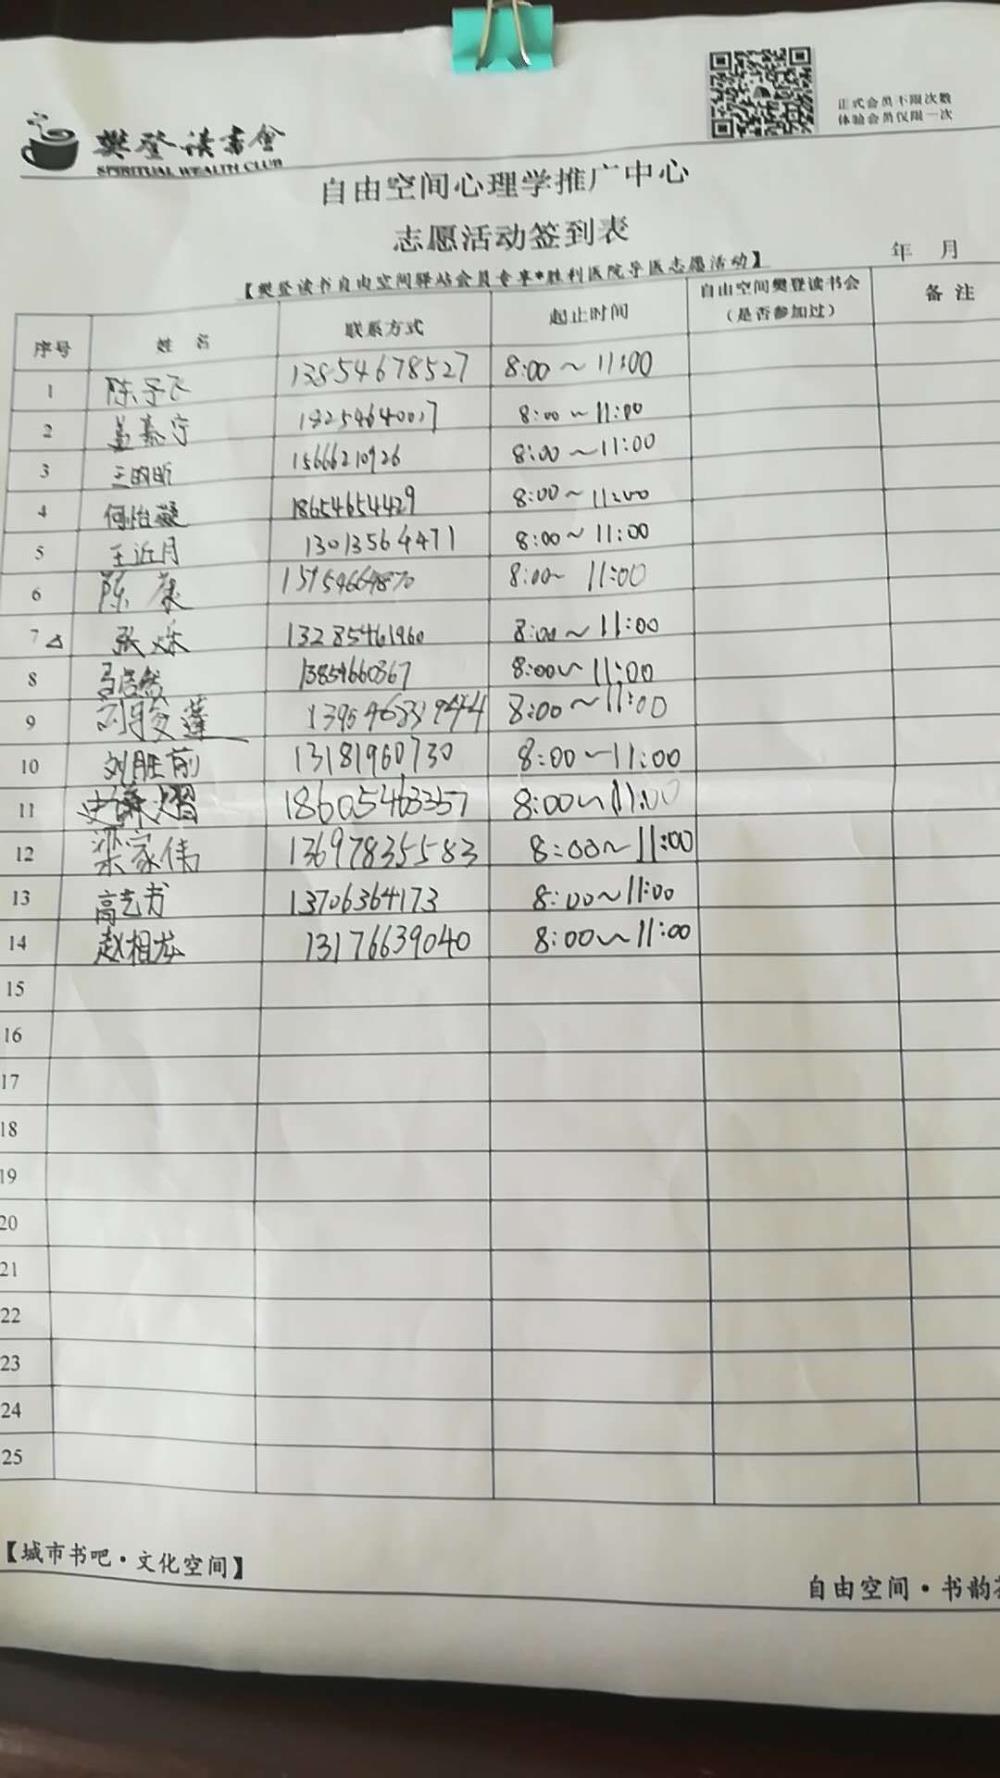 樊登读书会
SPIRITUAL WEALTH CLUB
正式会员不限次数
体验会员仅限一次
自由空间心理学推广中心
志愿活动签到表
年 月
【樊登读书自由空间驿站会员专享*胜利医院导医志愿活动】
序号 姓名 联系方式 起止时间 自由空间樊登读书会（是否参加过） 备注
1 陈子飞 13854678527 8:00～11:00
2 盖嘉宁 8:00～11:00
3 15666210926 8:00～11:00
4 何怡凝 18654654429 8:00～11:00
5 王近月 13013564471 8:00～11:00
6 陈 8:00～ 11:00
7 张 13285461960 8:00～11:00
8 马浩然 13854660867 8:00～11:00
9 8:00～11:00
10 刘胜前 13181960730 8:00～11:00
11 18605463357 8:00～11:00
12 梁家伟 13697835583 8:00～11:00
13 高艺书 13706364173 8:00～11:00
14 赵相龙 13176639040 8:00～11:00
15
16
17
18
19
20
21
22
23
24
25
【城市书吧·文化空间】
自由空间·书韵